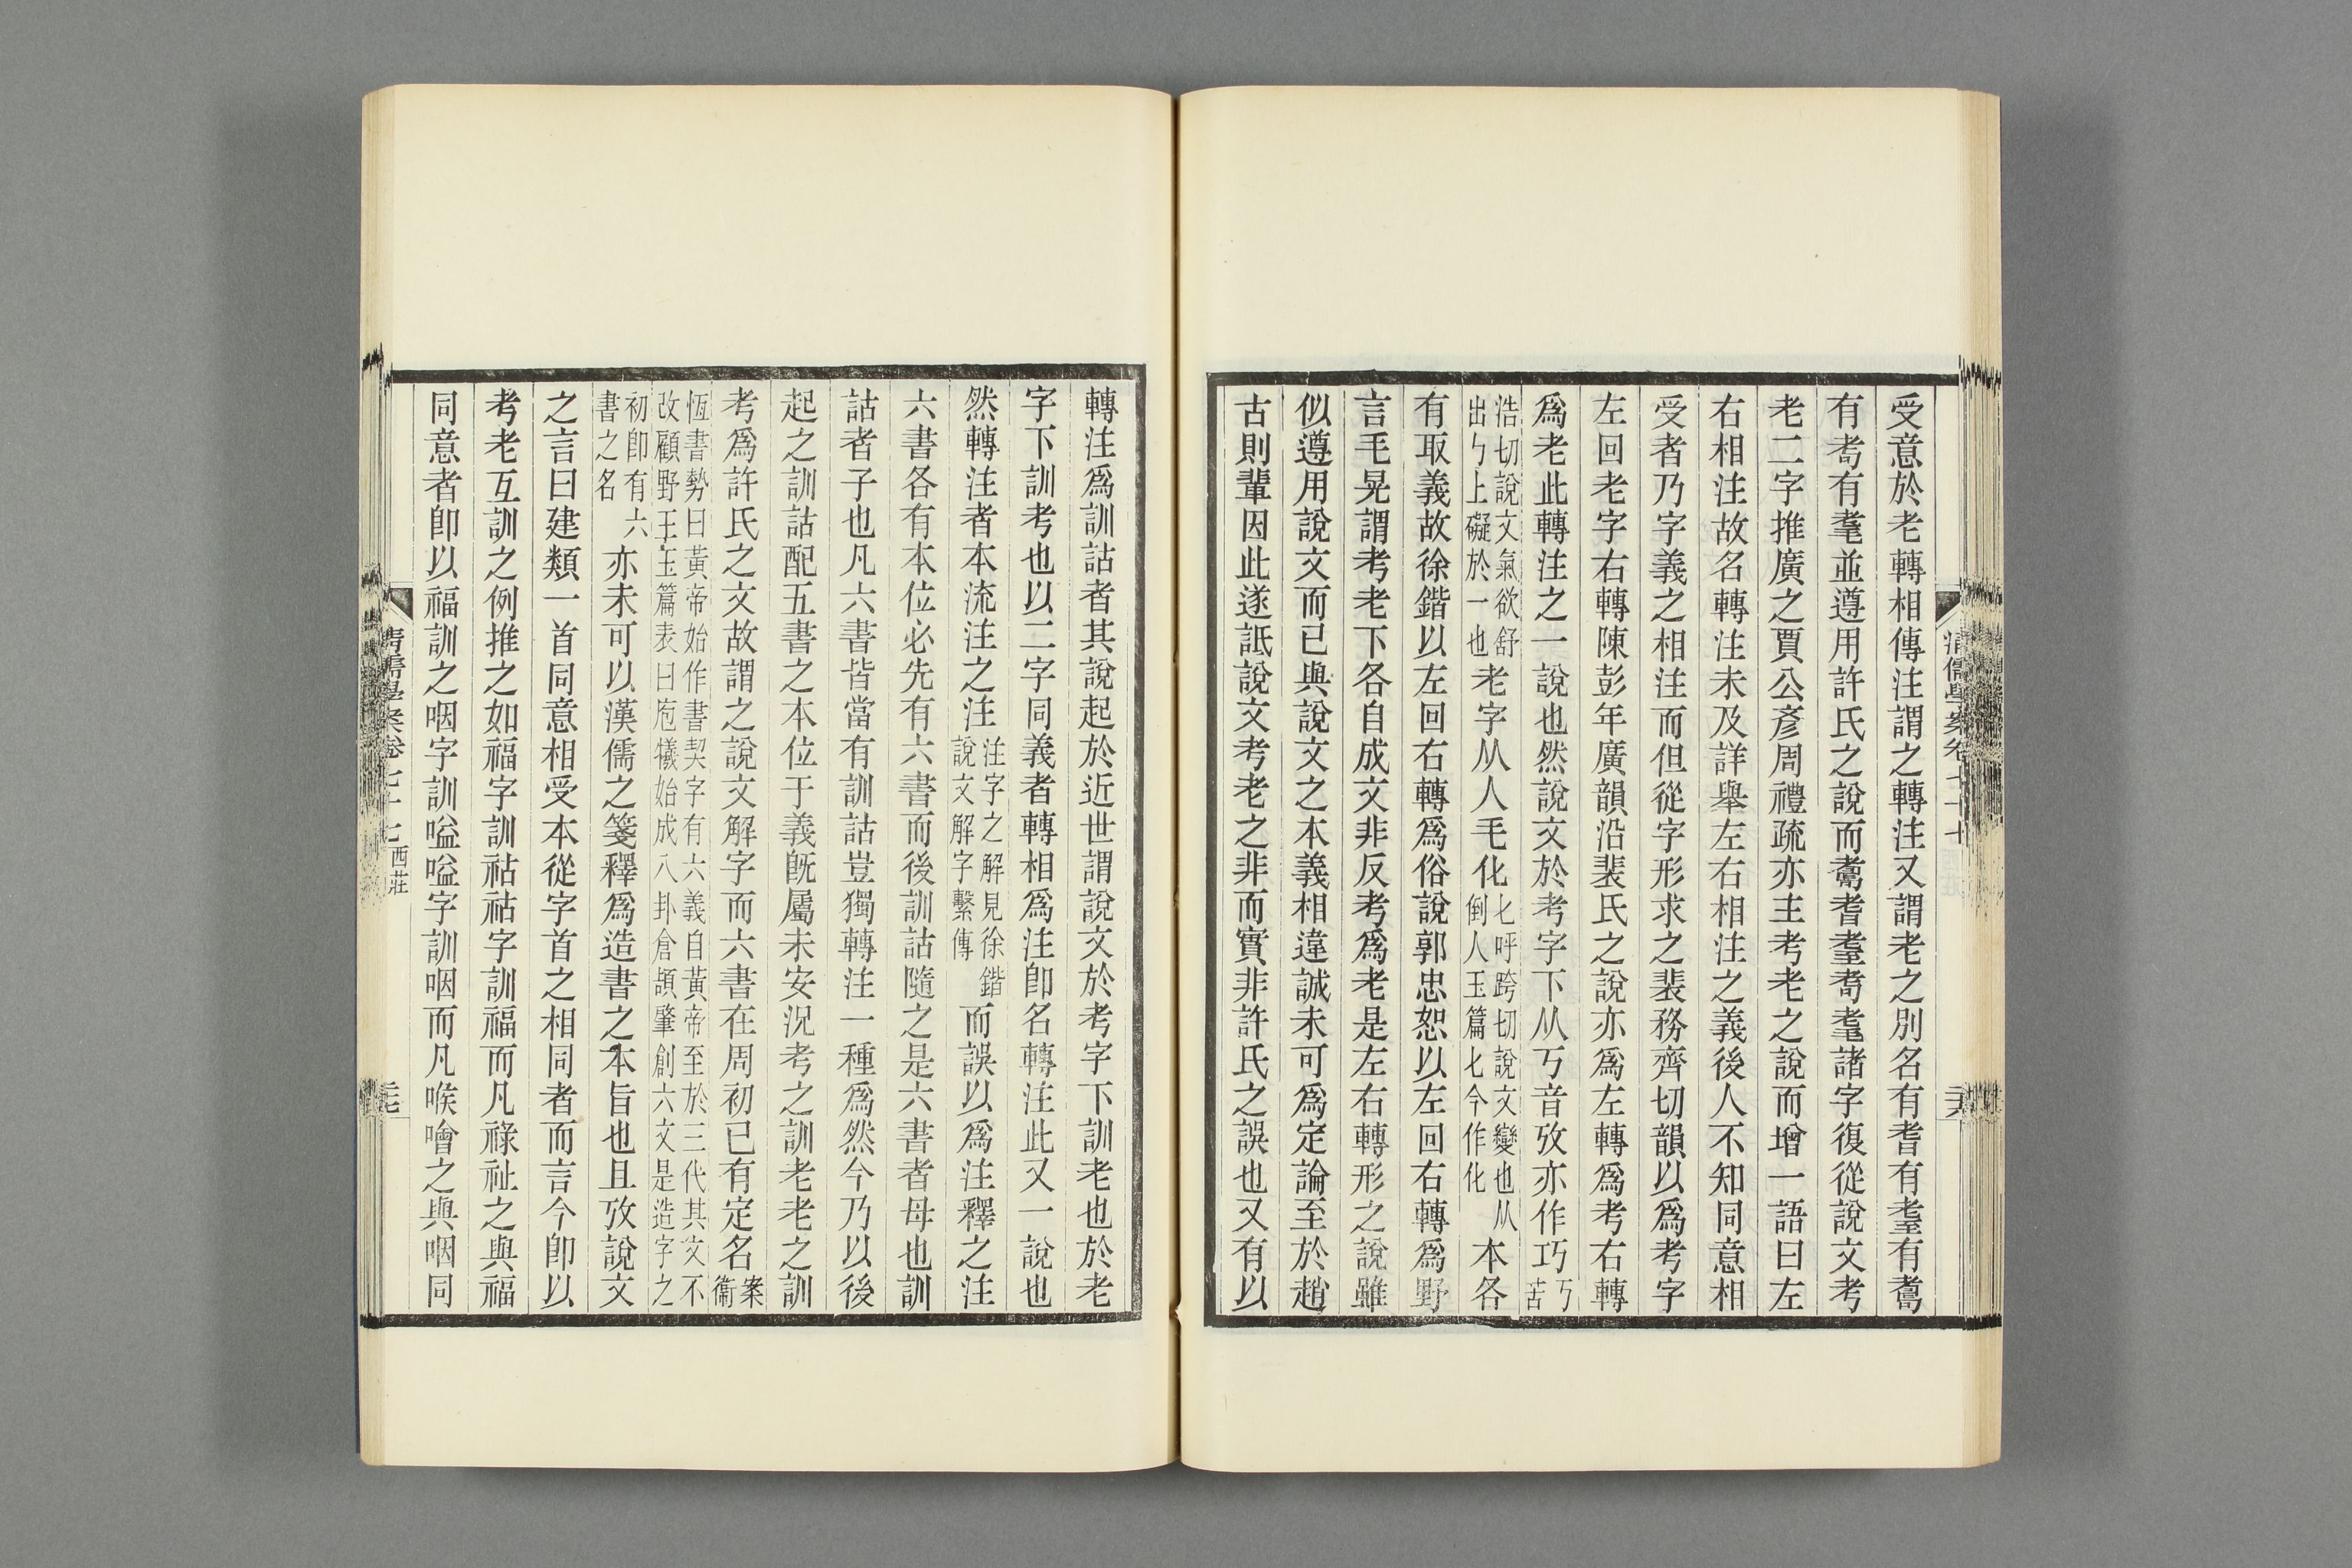 受意於老轉相傳注謂之轉注又謂老之別名有耆有耋有耇
有耉有耄並遵用許氏之說而耇耆耋耉耄諸字復從說文考
老二字推廣之賈公彥周禮疏亦主考老之說而增一語曰左
右相注故名轉注未及詳舉左右相注之義後人不知同意相
受者乃字義之相注而但從字形求之裴務齊切韻以爲考字
左回老字右轉陳彭年廣韻沿裴氏之說亦爲左轉爲考右轉
爲老此轉注之一說也然說文於考字下从丂音攷亦作巧丂苦
浩切說文氣欲舒出ㄣ上礙於一也老字从人毛化匕呼跨切說文變也从倒人玉篇匕今作化本各
有取義故徐鍇以左回右轉爲俗說郭忠恕以左回右轉爲野
言毛晃謂考老下各自成文非反考爲老是左右轉形之說雖
似遵用說文而已與說文之本義相違誠未可爲定論至於趙
古則輩因此遂詆說文考老之非而實非許氏之誤也又有以
清儒學案卷七十七
轉注爲訓詁者其說起於近世謂說文於考字下訓老也於老
字下訓考也以二字同義者轉相爲注卽名轉注此又一說也
然轉注者本流注之注注字之解見徐鍇說文解字繫傳而誤以爲注釋之注
六書各有本位必先有六書而後訓詁隨之是六書者母也訓
詁者子也凡六書皆當有訓詁豈獨轉注一種爲然今乃以後
起之訓詁配五書之本位于義旣屬未安況考之訓老老之訓
考爲許氏之文故謂之說文解字而六書在周初已有定名案衞
恆書勢曰黃帝始作書契字有六義自黃帝至於三代其文不改顧野王玉篇表曰庖犧始成八卦倉頡肇創六文是造字之
初卽有六書之名亦未可以漢儒之箋釋爲造書之本旨也且攷說文
之言曰建類一首同意相受本從字首之相同者而言今卽以
考老互訓之例推之如福字訓祜祜字訓福而凡祿祉之與福
同意者卽以福訓之咽字訓嗌嗌字訓咽而凡喉噲之與咽同
清儒學案卷七十七 西莊